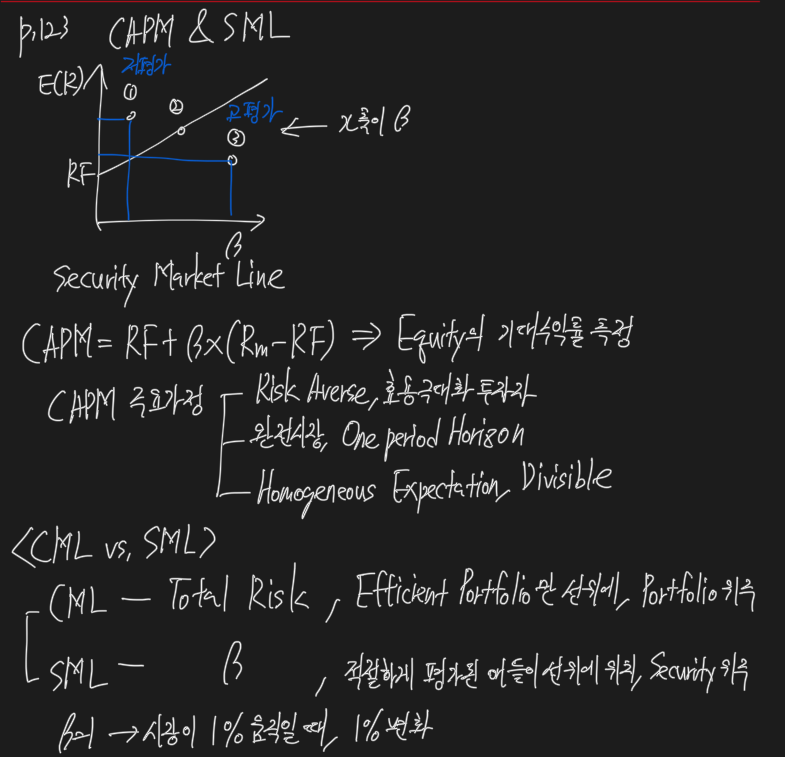 p.123 CAPM & SML
저평가
E(R) ① ② 고평가
③ ← x축이 β
RF
β
Security Market Line
CAPM = RF + β×(Rm-RF) ⇒ Equity의 기대수익률 측정
CAPM 주요가정 Risk Averse, 효용극대화 투자자
완전시장, One period Horizon
Homogeneous Expectation, Divisible
<CML vs, SML>
CML — Total Risk, Efficient Portfolio만 선위에, Portfolio 위주
SML — β, 적절하게 평가된 애들이 선위에 위치, Security 위주
β=1 → 시장이 1% 움직일 때, 1% 변화